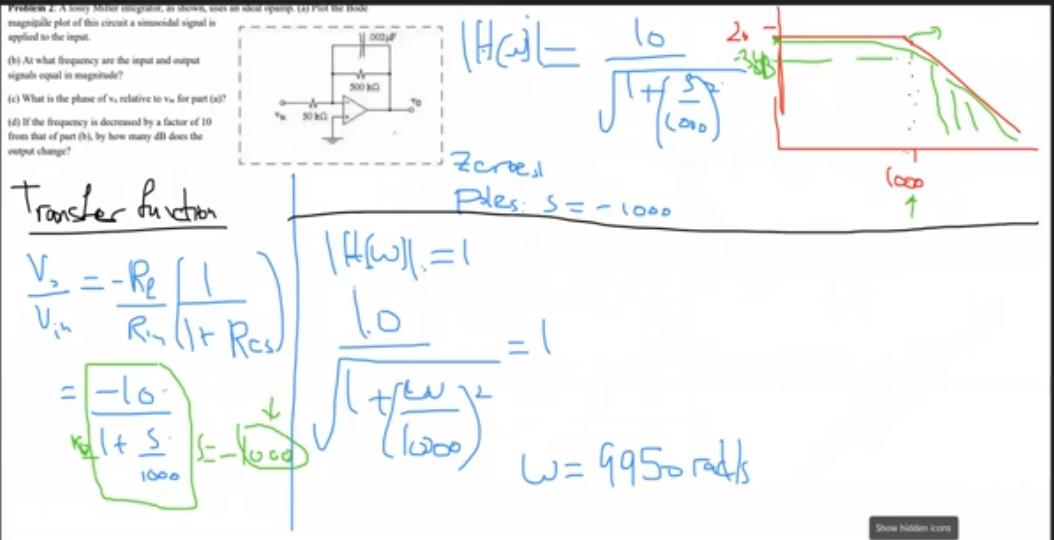 Problem 2: A lossy Miller integrator, as shown, uses an ideal opamp. (a) Plot the Bode
magnitude plot of this circuit a sinusoidal signal is
applied to the input.
(b) At what frequency are the input and output
signals equal in magnitude?
(c) What is the phase of vo relative to vin for part (a)?
(d) If the frequency is decreased by a factor of 10
from that of part (b), by how many dB does the
output change?
.002μF
500 kΩ
vin 50 kΩ
vo
|H(ω)| = 10 / √(1+(s/1000)²)
20
-3dB
1000
Zeroes:
Poles: s = -1000
Transfer function
Vo/Vin = -Rf/Rin (1/(1+Rcs))
= -10/(1+s/1000) s=-1000
|H(ω)| = 1
10 / √(1+(ω/1000)²) = 1
ω = 9950 rad/s
Show hidden icons